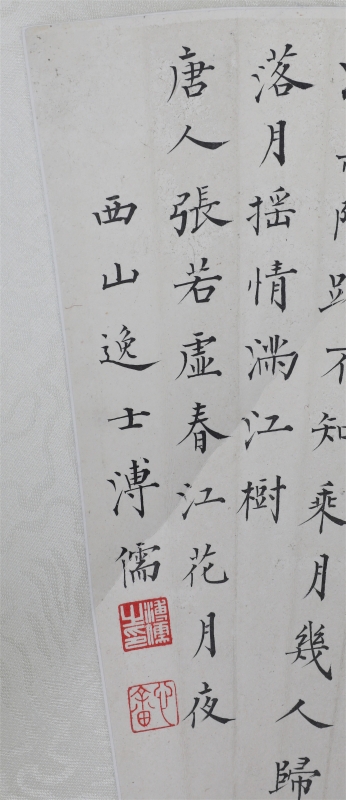 路不知乘月幾人歸
落月摇情滿江樹
唐人張若虛春江花月夜
西山逸士溥儒
溥儒之印
心畬